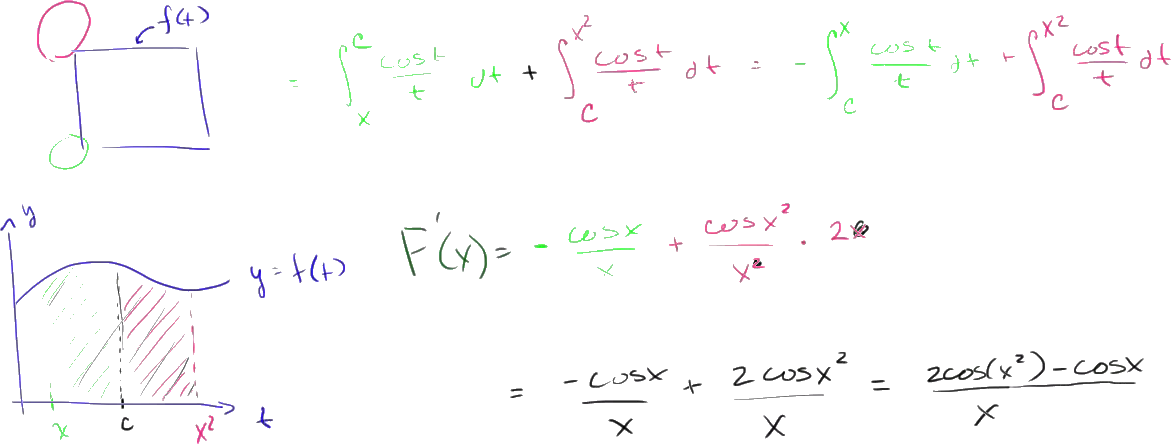 f(t)
= ∫_x^c cos t / t dt + ∫_c^{x²} cos t / t dt = - ∫_c^x cos t / t dt + ∫_c^{x²} cos t / t dt
y
y = f(t)
x c x² t
F'(x) = - cos x / x + cos x² / x² · 2x
= -cos x / x + 2 cos x² / x = 2cos(x²) - cos x / x